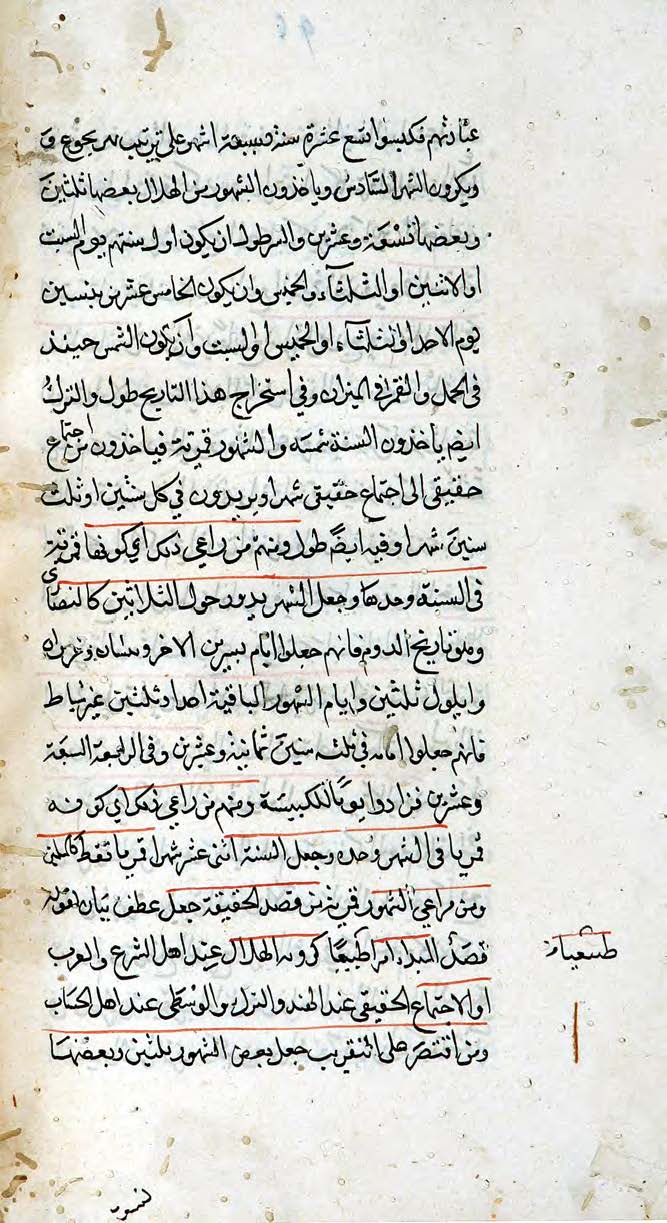 عبادتهم فكبسوا تسع عشرة سنة بسبعة اشهر على ترتيب
ويكررون الشهر السادس وياخذون الشهور من الهلال بعضها ثلثين
وبعضها تسعة وعشرين والشرط ان يكون اول سنتهم يوم السبت
او الاثنين او الثلثاء والخميس وان يكون الخامس عشر من
يوم الاحد او الثلثاء او الخميس او السبت وان يكون الشمس حينئذ
فى الحمل والقمر فى الميزان وفى استخراج هذا التاريخ طول والترك
ايضا ياخذون السنة شمسية والشهور قمرية فياخذون من اجتماع
حقيقى الى اجتماع حقيقى شهرا ويزيدون في كل سنتين او ثلث
سنين شهرا وفيه ايضا طول ومنهم من راعي ذلك اي كونها قمرية
فى السنة وحدها وجعل الشهر يدور حول الثلاثين كالنصارى
ومنه تاريخ الروم فانهم جعلوا ايام تشرين الاخر ونيسان وحزيران
وايلول ثلثين وايام الشهور الباقية احدا وثلثين غير شباط
فانهم جعلوا ايامه في ثلث سنين ثمانية وعشرين وفى الرابعة التسعة
وعشرين فزادوا يوما للكبيسة ومنهم من راعي ذلك اي كونه
قمريا فى الشهر وحده وجعل السنة اثنى عشر شهرا قمريا فقط كالمسلمين
ومن مراعي الشهور قمرية من قصد الحقيقة جعل عطف بيان لقوله
قصد المبداء امرا طبيعيا كروية الهلال عند اهل الشرع والعرب
او الاجتماع الحقيقى عند الهند والترك والوسطى عند اهل الحساب
ومن اقتصر على التقريب جعل بعض الشهور ثلثين وبعضها